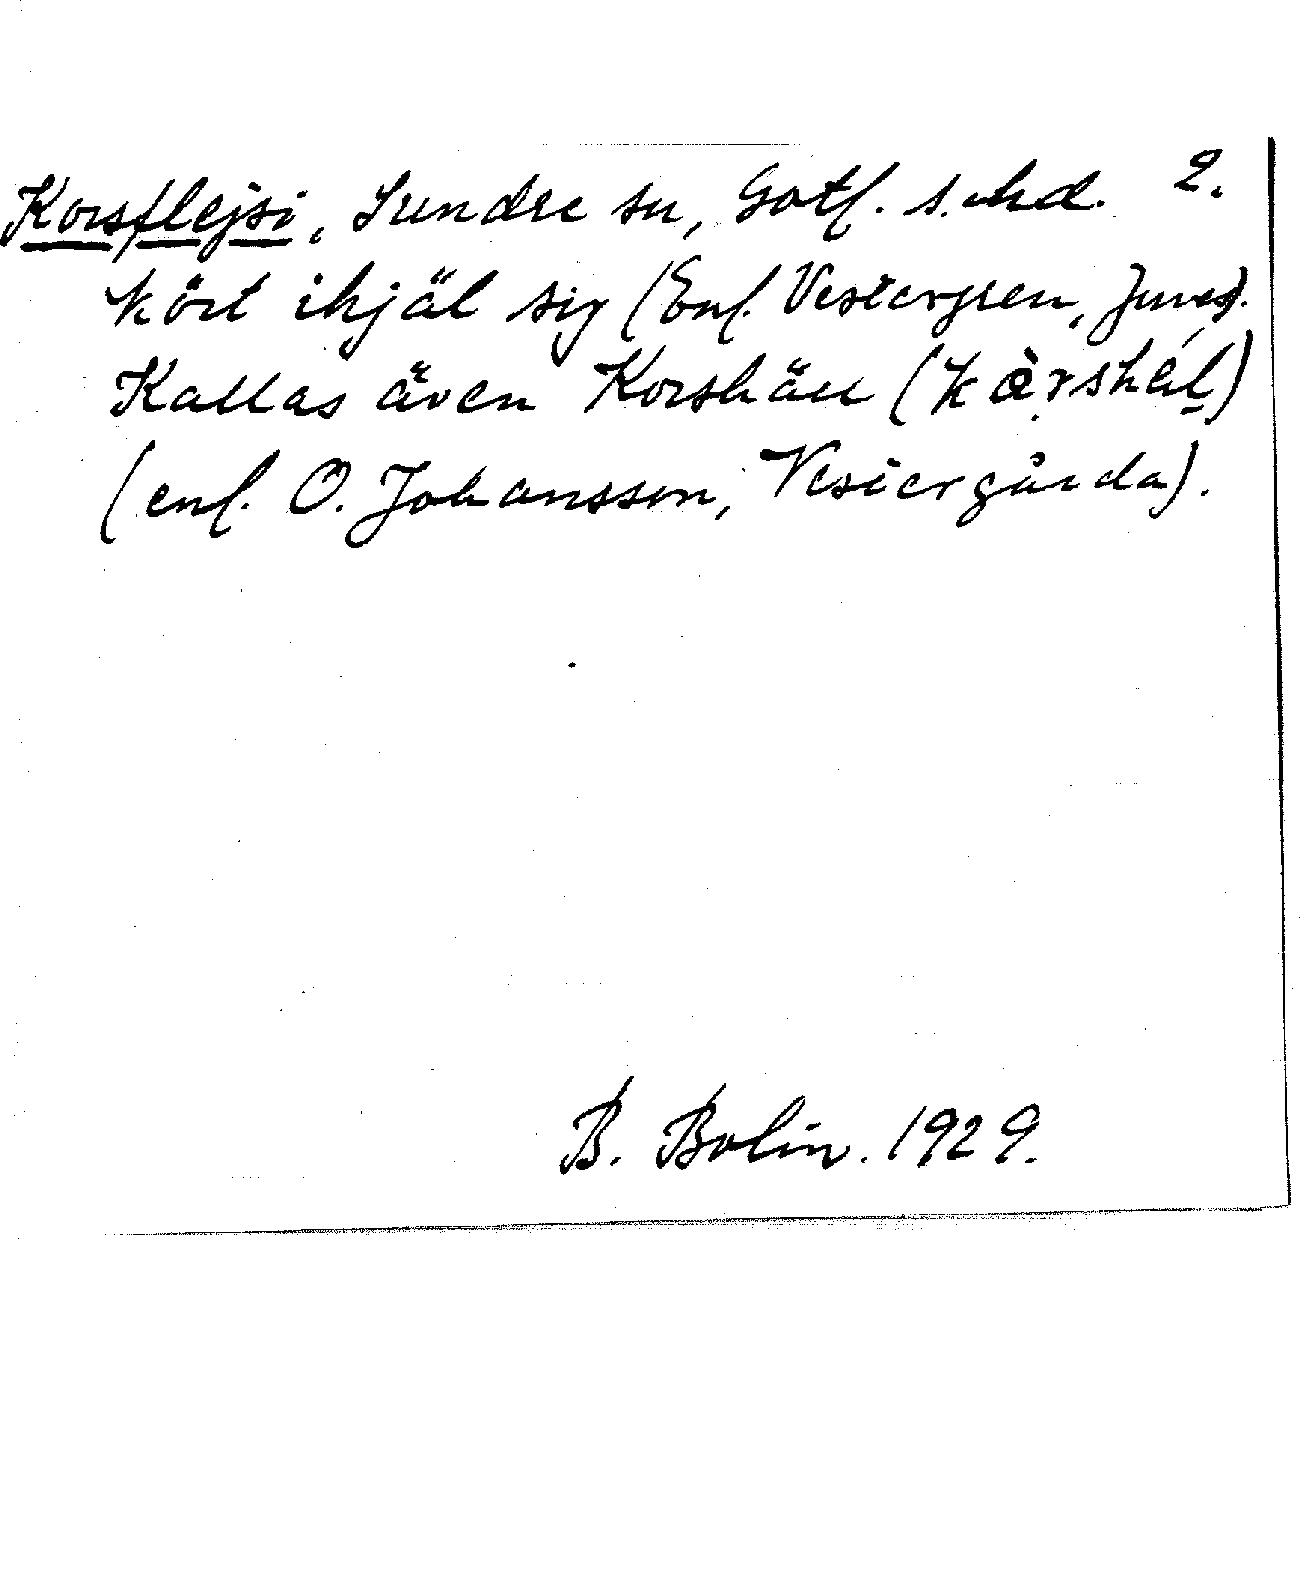 Korsflejsi, Sundre sn, Gotl. s. hd. 2.
kört ihjäl sig (Enl. Vestergren, Junes).
Kallas även Korshäll (kàrshäl)
(enl. O. Johansson, Vestergårda).
B. Bolin. 1929.